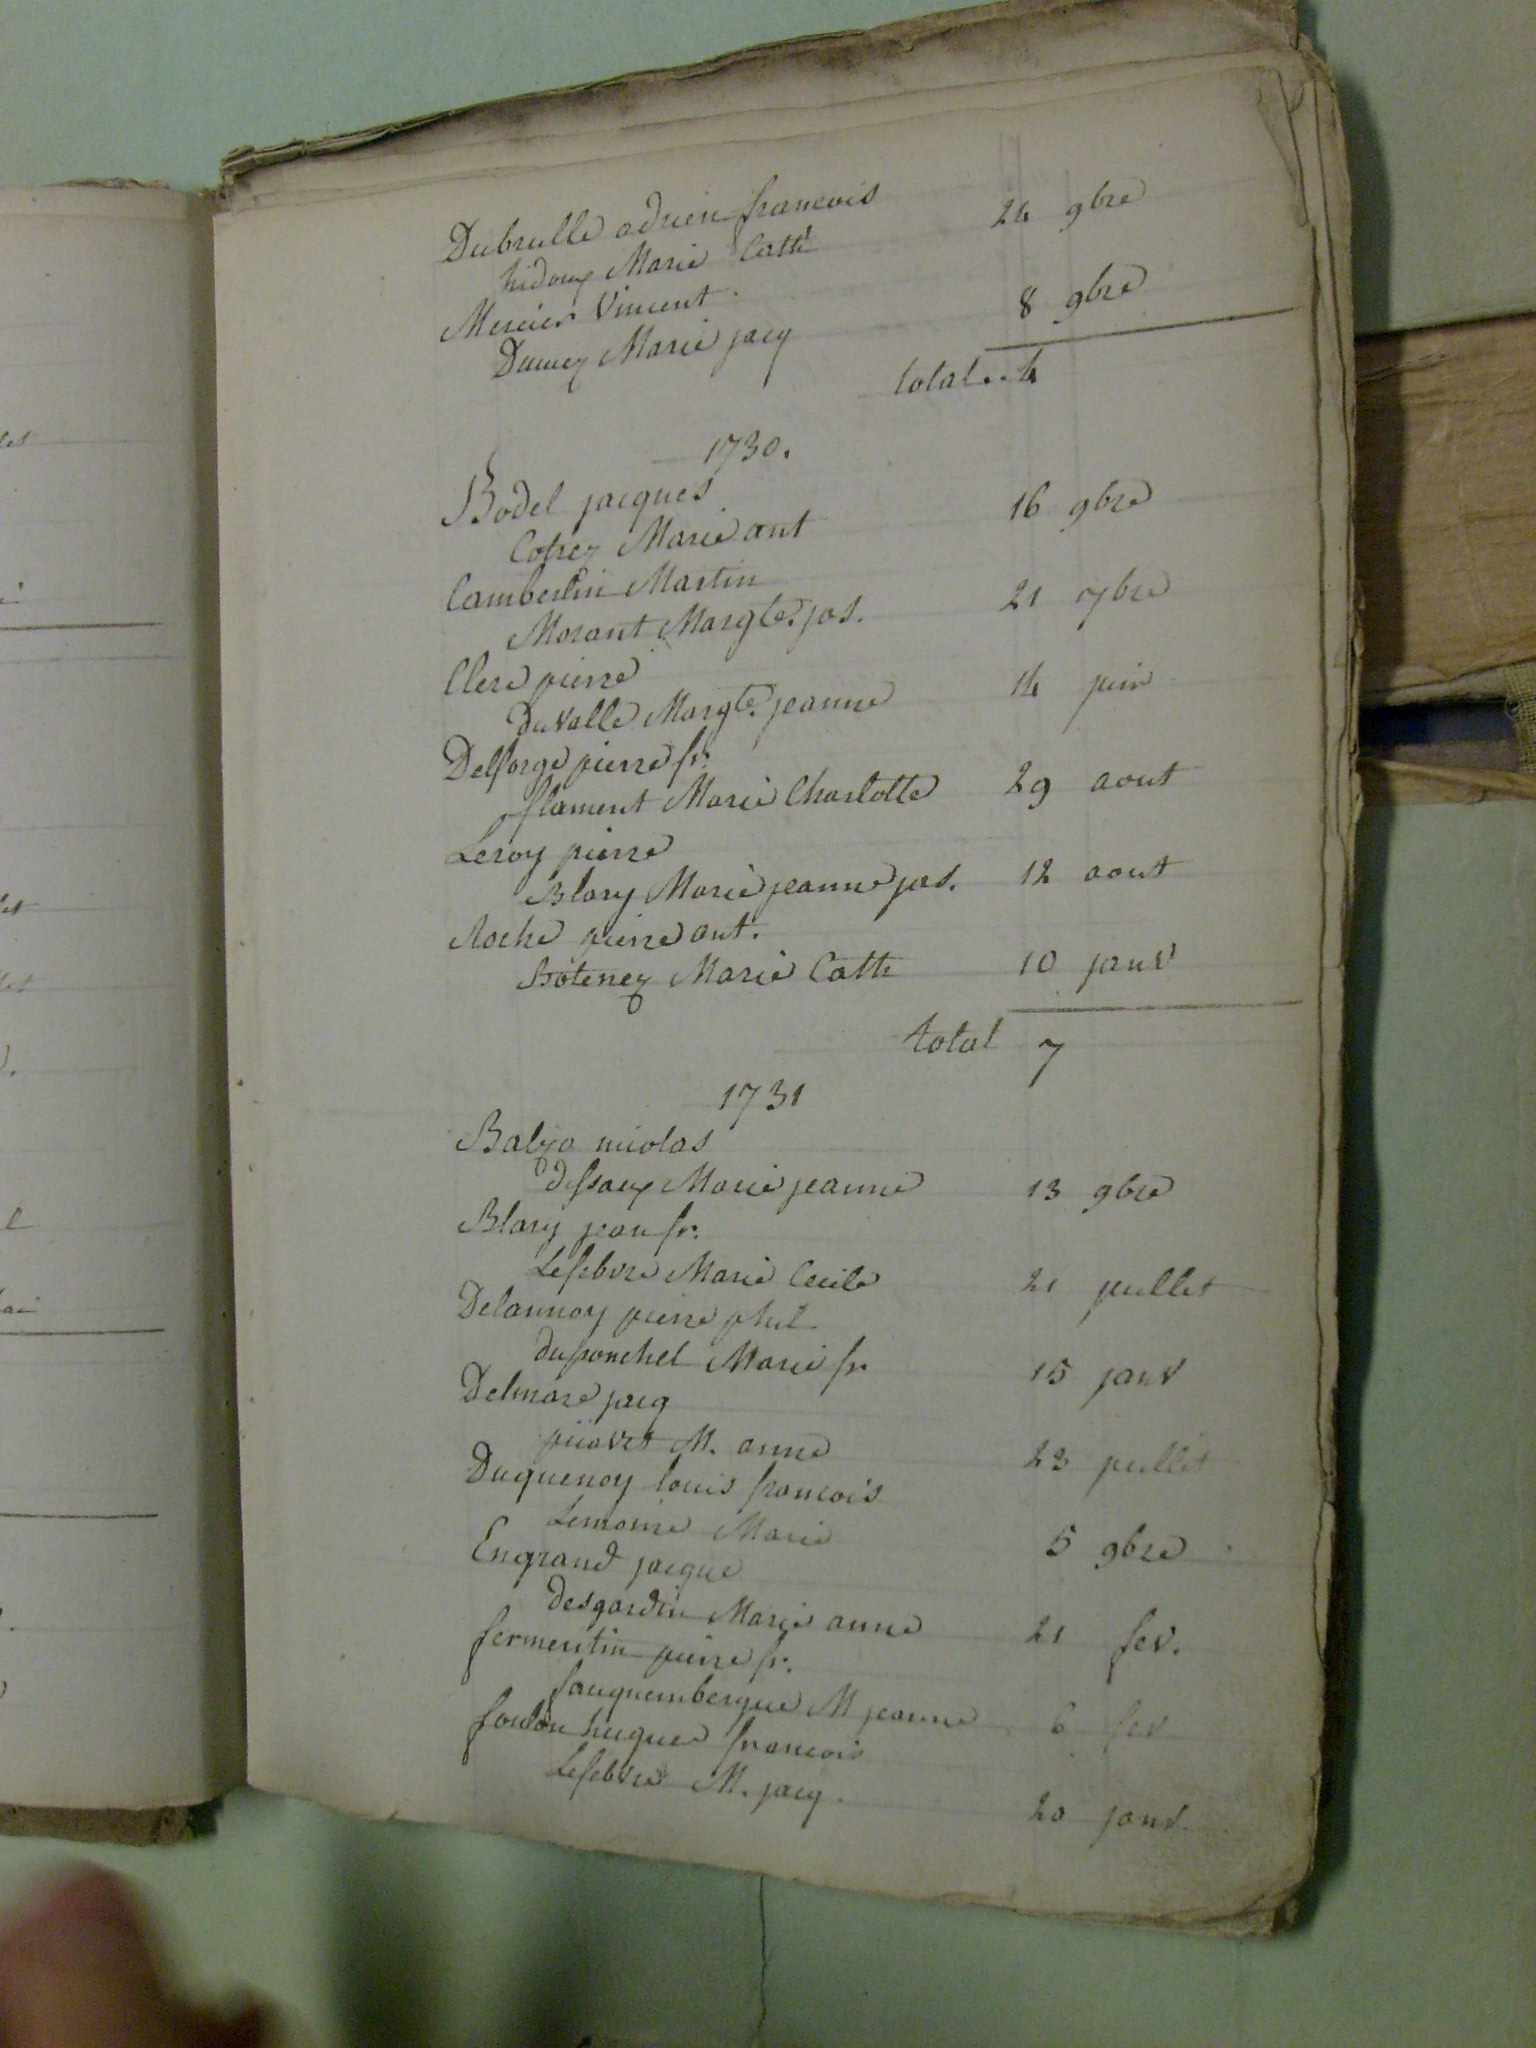 Dubrulle adrien francois 24 9bre
hidoux Marie Cathe
Mercier Vincent 8 9bre
Dumez Marie jacq
total .. 4
1730.
Bodel jacques
Coprez Marie ant 16 9bre
Camberlin Martin
Morant Margte. jos. 21 7bre
Clere pierre
Duvalle Margte. jeanne 14 juin
Delforge pierre fr.
flament Marie Charlotte 29 aout
Leroy pierre
Blary Marie jeanne jos. 12 aout
Roche pierre ant.
Botenez Marie Cath 10 janv
total 7
1731
Balza nicolas
dessaux Marie jeanne 13 9bre
Blary jean fr.
Lefebvre Marie Cecile 21 juillet
Delannoy pierre phil
duponchel Marie fr 15 janv
Delmare jacq
picavet M. anne 23 juillet
Duquenoy louis francois
Lemoine Marie 5 9bre
Engrand jacque
desgardin Marie anne 21 fev.
fermentin pierre fr.
fauquembergue M jeanne 6 fev
foulon hugues francois
Lefebvre M. jacq. 20 janv.